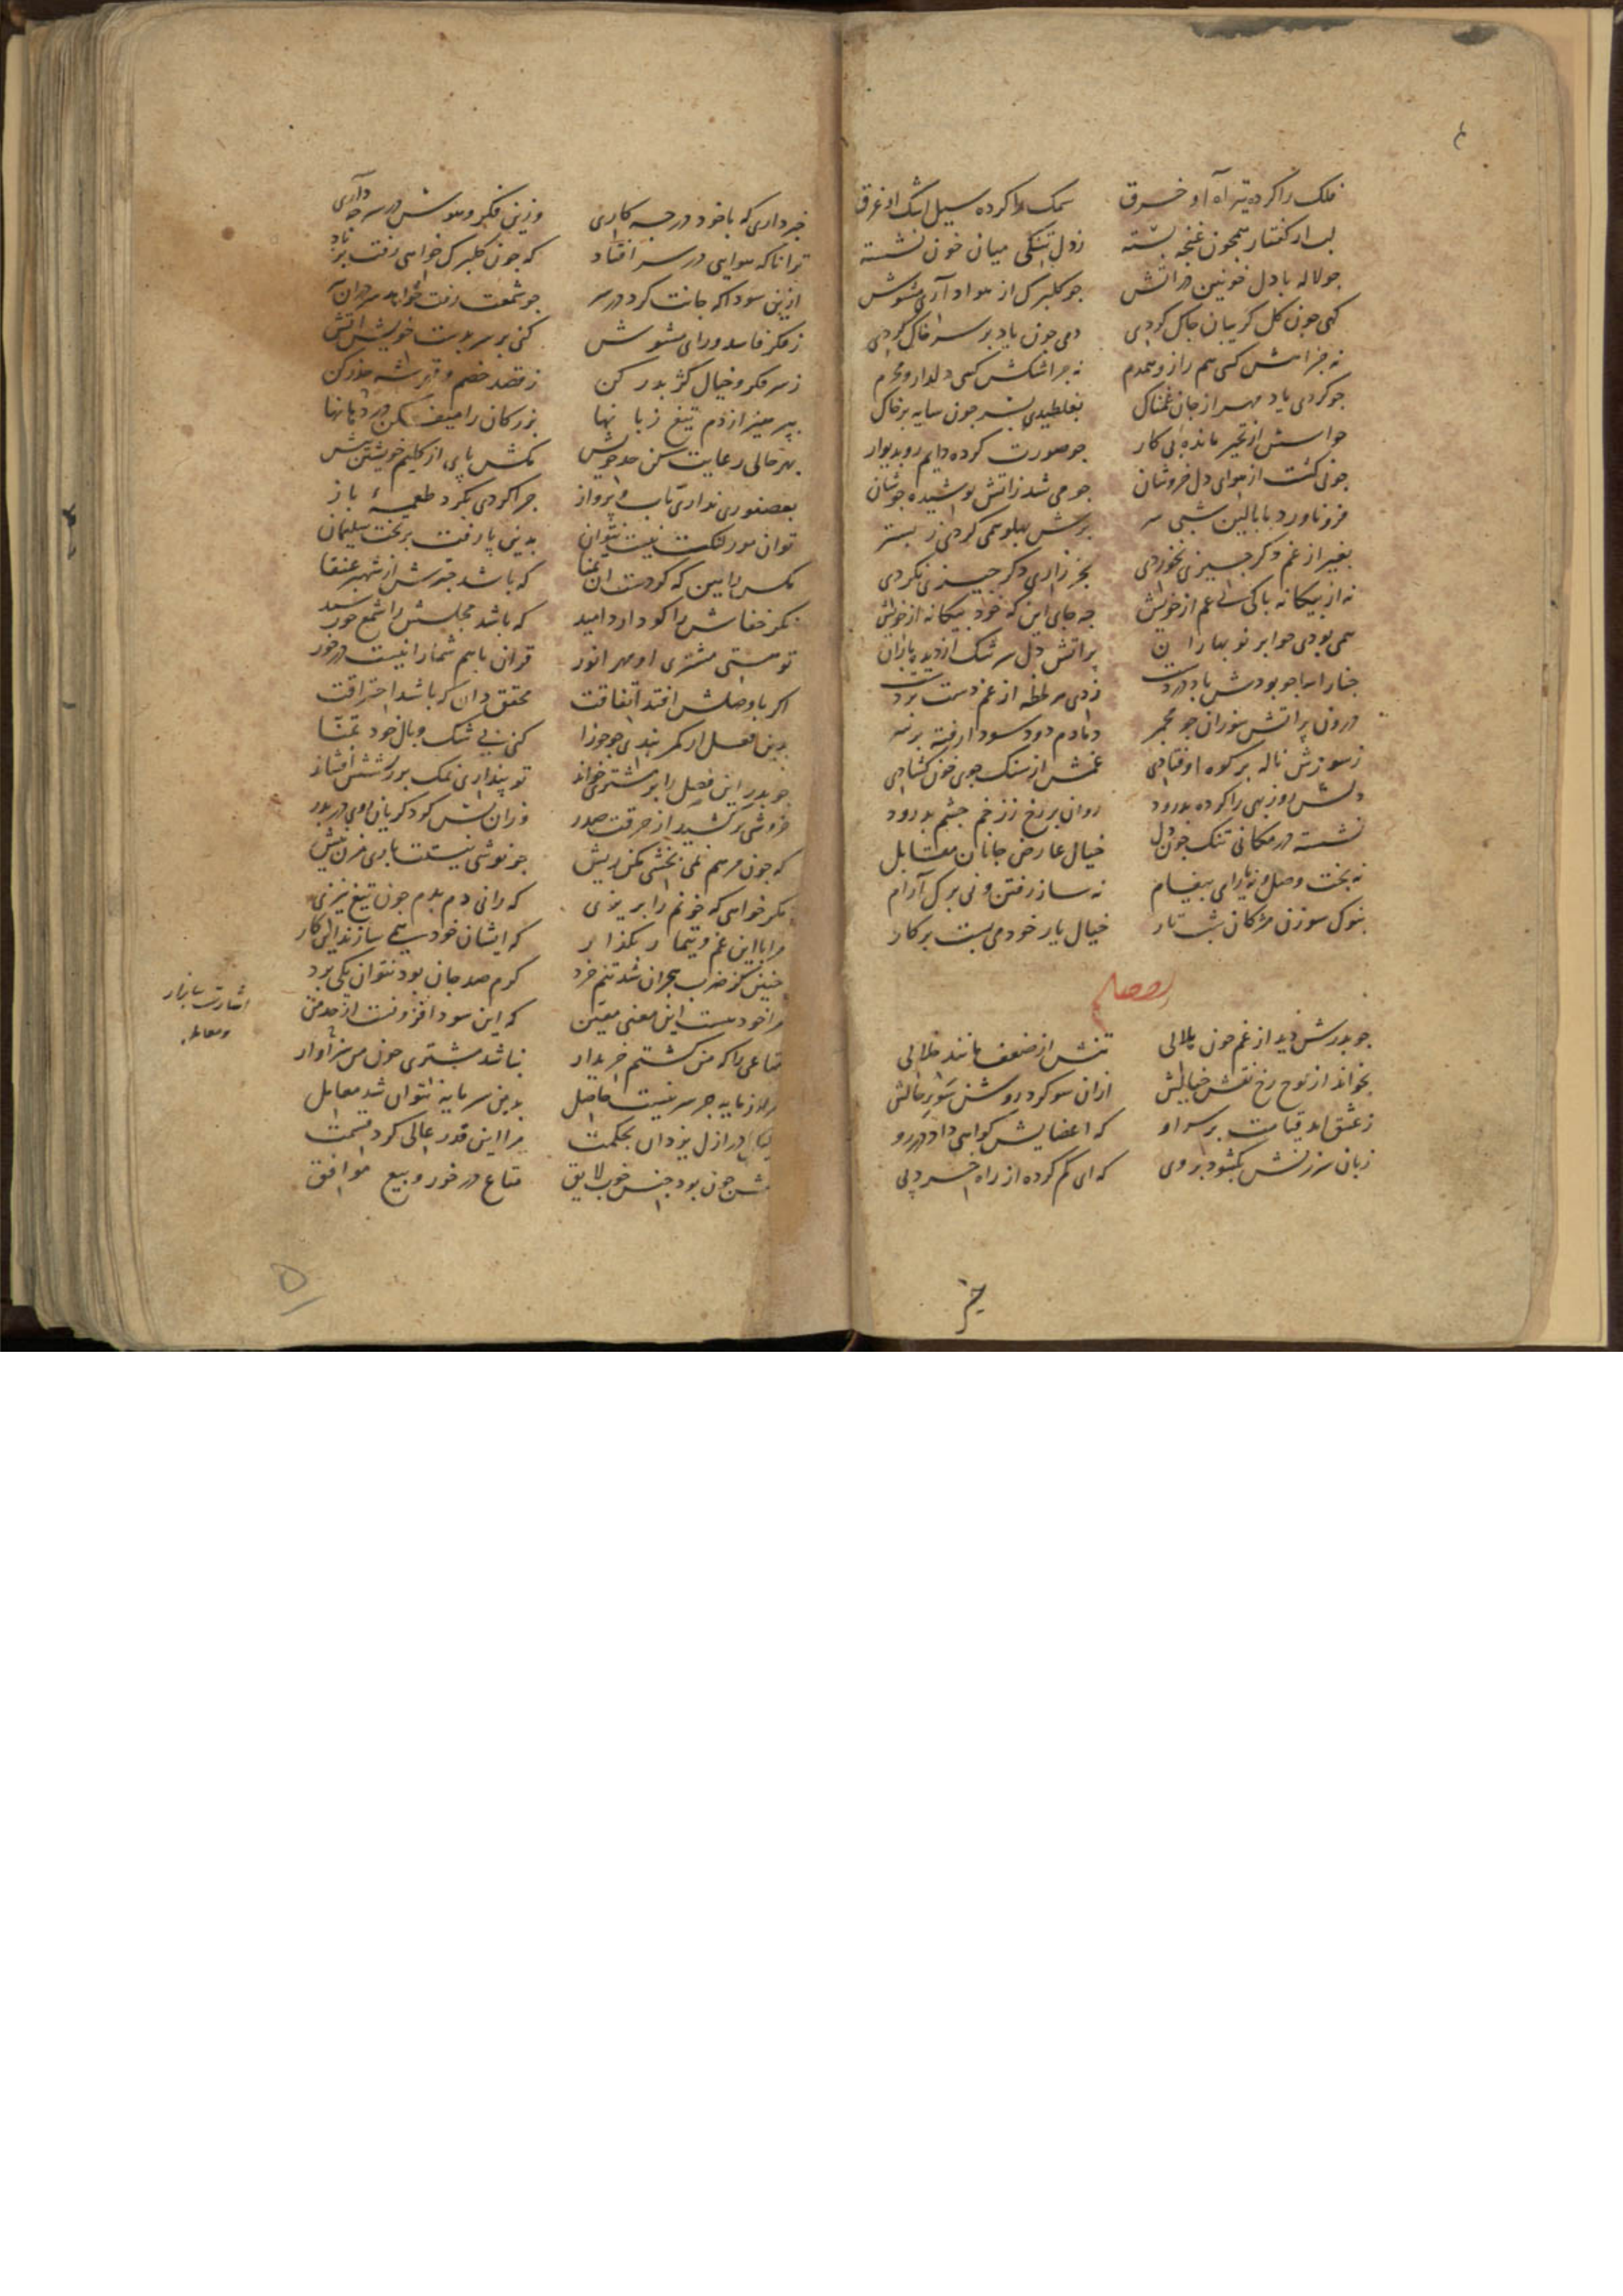 فلک را کرده تیر آه او خرق سمک را کرده سیل اشک او غرق
لب از گفتار همچون غنچه بسته ز دل تنگی میان خون نشسته
جو لاله با دل خونین در اتش جو کلبرک از هوا و آرمشوش
کهی جون کل کریبان جاک کردی دمی جون باد بر سر خاک کردی
نه جز اهش کسی هم راز و همدم نه جز اشکش کسی دلدار و محرم
جو کردی یاد مهر از جان غمناک بغلطیدی بسر جون سایه بر خاک
حواسش از تحیر مانده بی کار جو صورت کرده دایم رو بدیوار
جو نی کشت از هوای دل خروشان جو می شد ز اتش پوشیده جوشان
فرو ناورد با بالین شبی سر برش پهلو همی کردی ز بستر
بغیر از غم دکر جیزی نخوردی بجز زاری دکر جیزی نکردی
نه از بیکانه باکی نی غم از خویش جه جای این که خود بیکانه از خویش
همی بودی جو ابر نو بهاران پر اتش دل سرشک از دیده باران
زدی هر لحظه از غم دست بر دست
درون پر اتش سوزان جو مجمر دمادم دود سودا رفته بر سر
ز سوزش ناله بر کوه اوفتادی غمش از سنک جوی خون کشادی
دلش روز بهی را کرده بدرود روان بر رخ ز زخم جشم بد رود
نشسته در مکانی تنک جون دل خیال عارض جانان مقابل
نه بخت وصل و نه یارای پیغام نه ساز رفتن و نی برک آرام
بنوک سوزن مژکان شب تار خیال یار خود می بست بر کار
جو بدرش دید از غم جون هلالی تنش از ضعف مانند خلالی
بخواند از لوح رخ نقش خیالش ازان سو کرد روشن سو بر حالش
ز عشق امد قیامت بر سر او که اعضایش کواهی داد در رو
زبان سرزنش بکشود بر وی که ای کم کرده از راه خرد پی
خبر داری که با خود در جه کاری وزین فکر و هوس در سر جه داری
ترا تا که هوایی در سر افتاد که جون کلبرک خواهی رفت بر باد
ازین سودا که جانت کرد در سر جو شمعت رفت خواهد سر در ان سر
ز فکر فاسد و رای مشوش کنی بر سر بدست خویش اتش
ز سر فکر و خیال کژ بدر کن ز قصد خصم و حذر کن
بپرهیز از دم تیغ زبانها بزرکان را میفکن در دهانها
بهر حالی رعایت کن حد خویش مکش پای از کلیم خویشتن بیش
بعصفوری نداری تاب پرواز جرا کردی بکرد طعمهٔ باز
توان مور لنکت نیست نتوان بدین پا رفت بر تخت سلیمان
مکس را بین که کردست ان تمنا که باشد از شهپر عنقا
نکر خفاش را کو دارد امید که باشد مجلسش را شمع خورشید
تو هستی مشتری او مهر انور قران با هم شما را نیست در خور
اکر با وصلش افتد اتفاقت محقق دان که باشد احتراقت
بدین فعل ار کمر بندی جو جوزا کنی بی شک وبال خود تمنا
جو بدر این فصل را بر مشتری خواند تو پنداری نمک بر ریشش افشاند
خروشی بر کشید از حرقت صدر
که جون مرهم نمی بخشی مکن ریش جو نوشی نیستت باری مزن نیش
مکر خواهی که خونم را بریزی که رانی دم بدم جون تیغ تیزی
مرا با این غم و تیمار بکذار که ایشان خود همی سازند این کار
جنین کز ضرب هجران شد تنم خرد کرم صد جان بود نتوان یکی برد
مرا خود هست این معنی معین که این سودا فزونست از حد من
متاعی را که من کشتم خریدار نباشد مشتری جون من سزاوار
جز سر نیست حاصل بدین سرمایه نتوان شد معامل
در ازل یزدان بحکمت مرا این قدر عالی کرد قسمت
جون بود جنس خوب لایق متاع در خور و بیع موافق
اشارت ببازار
و معامله
۵